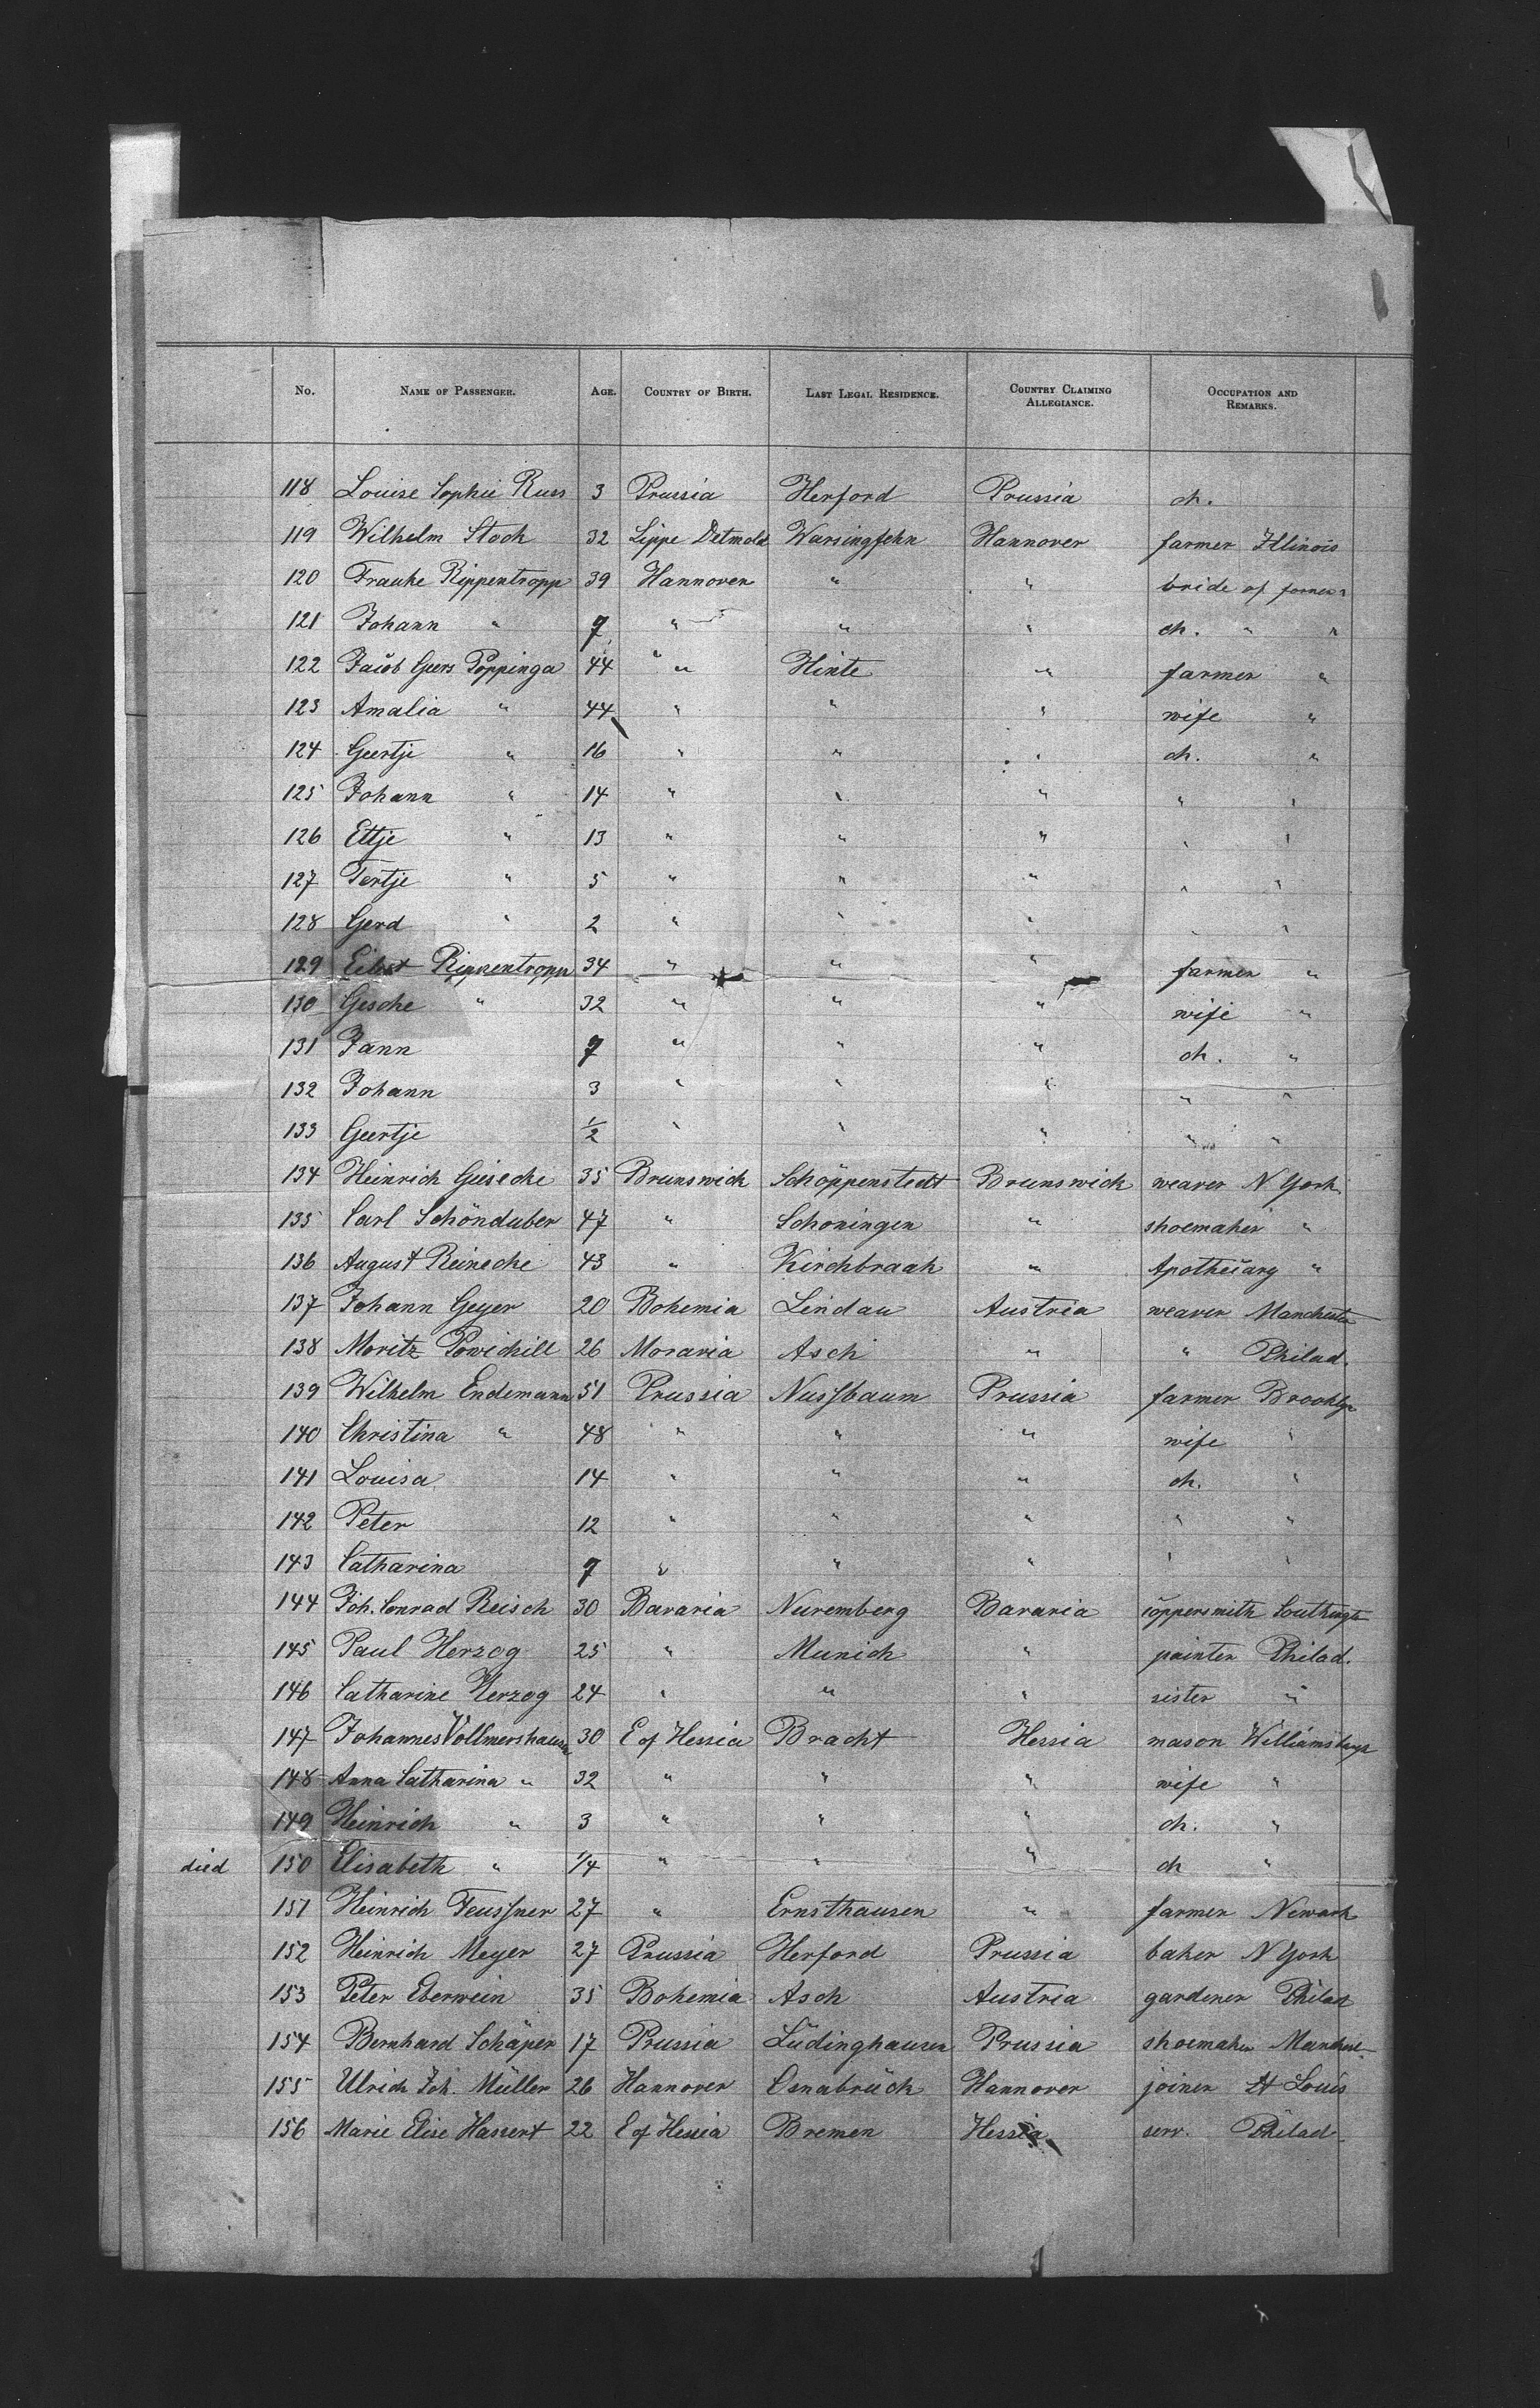 No. NAME OF PASSENGER. AGE. COUNTRY OF BIRTH. LAST LEGAL RESIDENCE. COUNTRY CLAIMING ALLEGIANCE. OCCUPATION AND REMARKS.
118 Louise Sophie Russ 3 Prussia Herford Prussia ch.
119 Wilhelm Stock 32 Lippe Detmold Warsingfehn Hannover farmer Illinois
120 Frauke Rippentropp 39 Hannover " " bride of former "
121 Johann " 9 " " " ch. " "
122 Jacob Geers Poppinga 44 " " Hinte " farmer "
123 Amalia " 44 " " " wife "
124 Geertje " 16 " " " ch. "
125 Johann " 14 " " " " "
126 Ettje " 13 " " " " "
127 Tertje " 5 " " " " "
128 Gerd " 2 " " " " "
129 Eilert Rippentropp 34 " " " farmer "
130 Gesche " 32 " " " wife "
131 Jann 9 " " " ch. "
132 Johann 3 " " " " "
133 Geertje 1/2 " " " " "
134 Heinrich Giesecke 35 Brunswick Schöppenstedt Brunswick weaver N York
135 Carl Schönduber 47 " Schoningen " shoemaker "
136 August Reinecke 43 " Kirchbraak " Apothecary "
137 Johann Geyer 20 Bohemia Lindau Austria weaver Manchester
138 Moritz Powichill 26 Moravia Asch " " Philad.
139 Wilhelm Endemann 51 Prussia Nussbaum Prussia farmer Brooklyn
140 Christina " 48 " " " wife "
141 Louisa 14 " " " ch. "
142 Peter 12 " " " " "
143 Catharina 9 " " " " "
144 Joh. Conrad Reisch 30 Bavaria Nuremberg Bavaria coppersmith Southingt
145 Paul Herzog 25 " Munich " painter Philad.
146 Catharine Herzog 24 " " " sister "
147 Johannes Vollmershausen 30 E of Hessia Bracht Hessia mason Williamsburgh
148 Anna Catharina " 32 " " " wife "
149 Heinrich " 3 " " " ch. "
died 150 Elisabeth " 1/4 " " " ch "
151 Heinrich Feussner 27 " Ernsthausen " farmer Newark
152 Heinrich Meyer 27 Prussia Herford Prussia baker N York
153 Peter Eberwein 35 Bohemia Asch Austria gardener Philad
154 Bernhard Schäper 17 Prussia Lüdinghausen Prussia shoemaker Manchest
155 Ulrich Joh. Müller 26 Hannover Osnabrück Hannover joiner St Louis
156 Marie Elise Hassert 22 E of Hessia Bremen Hessia serv. Philad.